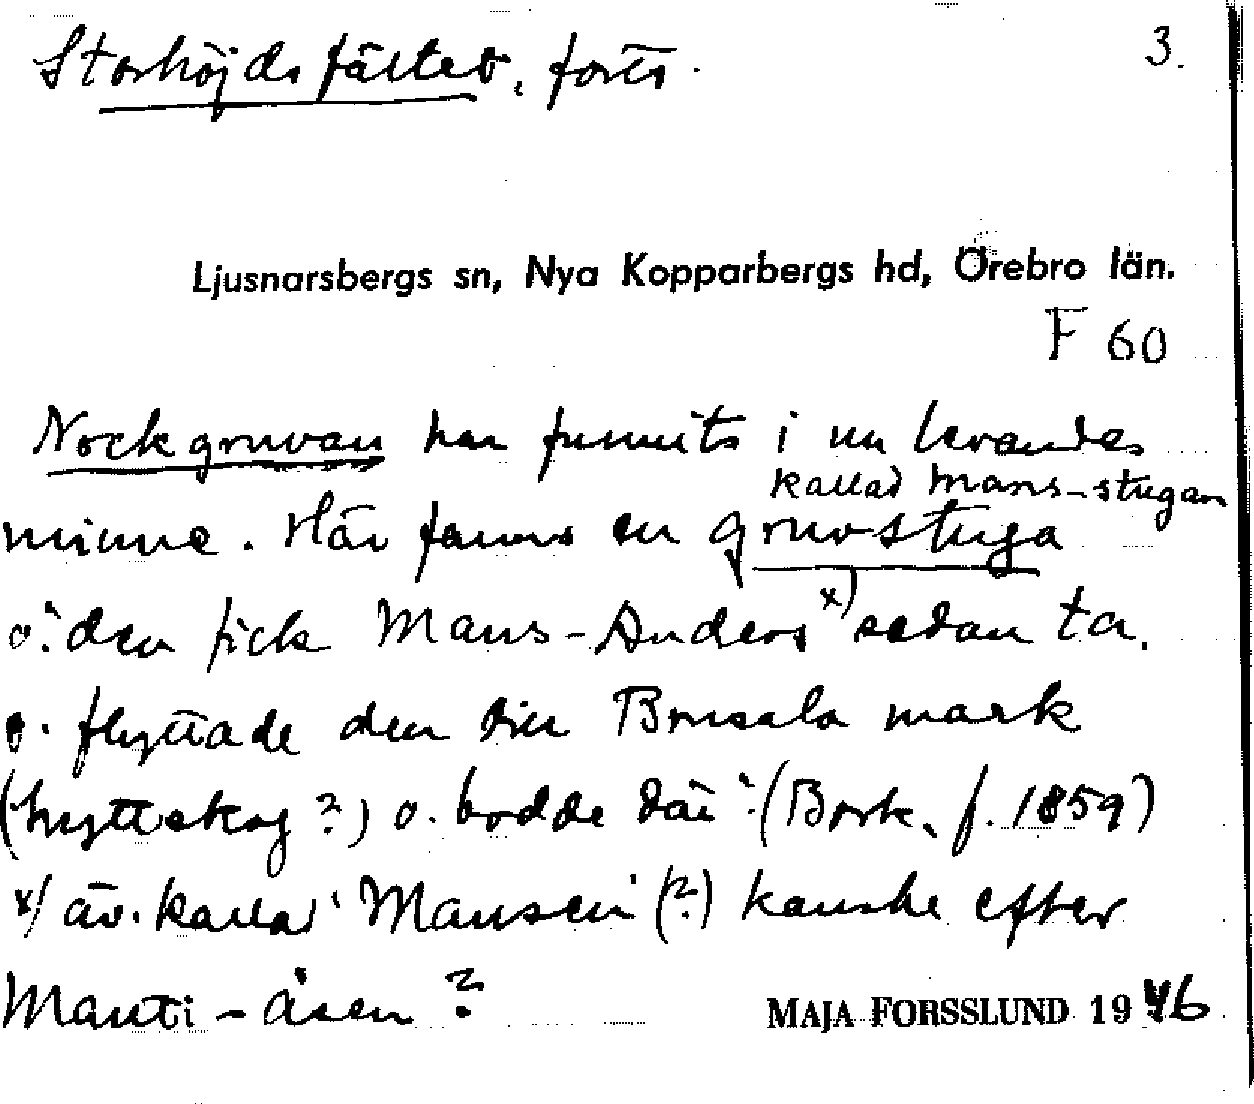 Storhöjdsfältet, forts. 3.
Ljusnarsbergs sn, Nya Kopparbergs hd, Örebro län.
F 60
Nockgruvan har funnits i nu levandes
kallad Mans-stugan
minne. Här fanns en gruvstuga
o. den fick Mans-Anders x) sedan ta
o. flyttade den till Brusala mark
(hytteskog?) o. bodde där. (Bork. f. 1859)
x/ äv. kallad 'Mansen' (?) kanske efter
Manti-åsen?
MAJA FORSSLUND 1946